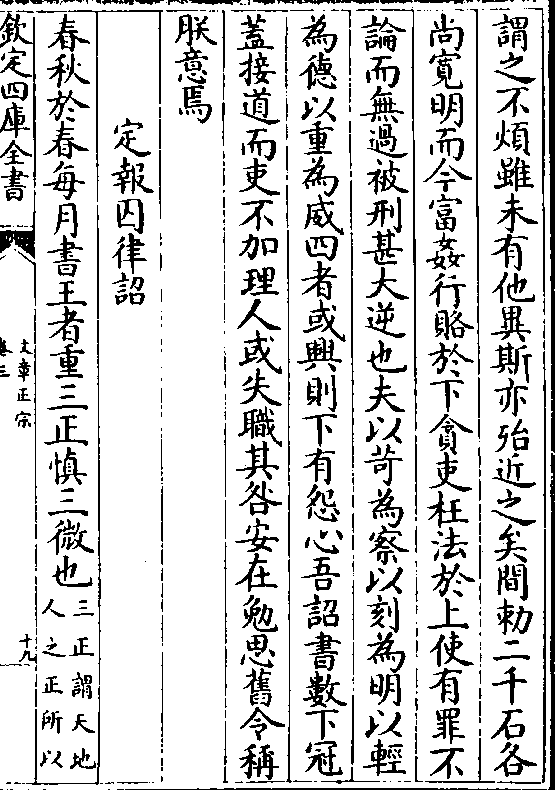 謂之不煩雖未有他異斯亦殆近之矣間勅二千石各
尚寛明而今富姦行賂於下貪吏枉法於上使有罪不
論而無過被刑甚大逆也夫以苛為察以刻為明以輕
為德以重為威四者或興則下有怨心吾詔書數下冠
蓋接道而吏不加理人或失職其咎安在勉思舊令稱
朕意焉
定報囚律詔
春秋於春每月書王者重三正慎三微也三正謂天地
人之正所以
欽定四庫全書
文章正宗
卷三
十九